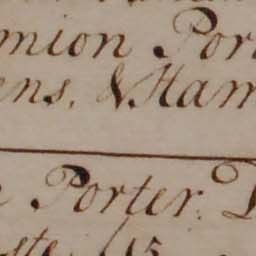 mion Por
ens, & Ham
Porter.
ste 15